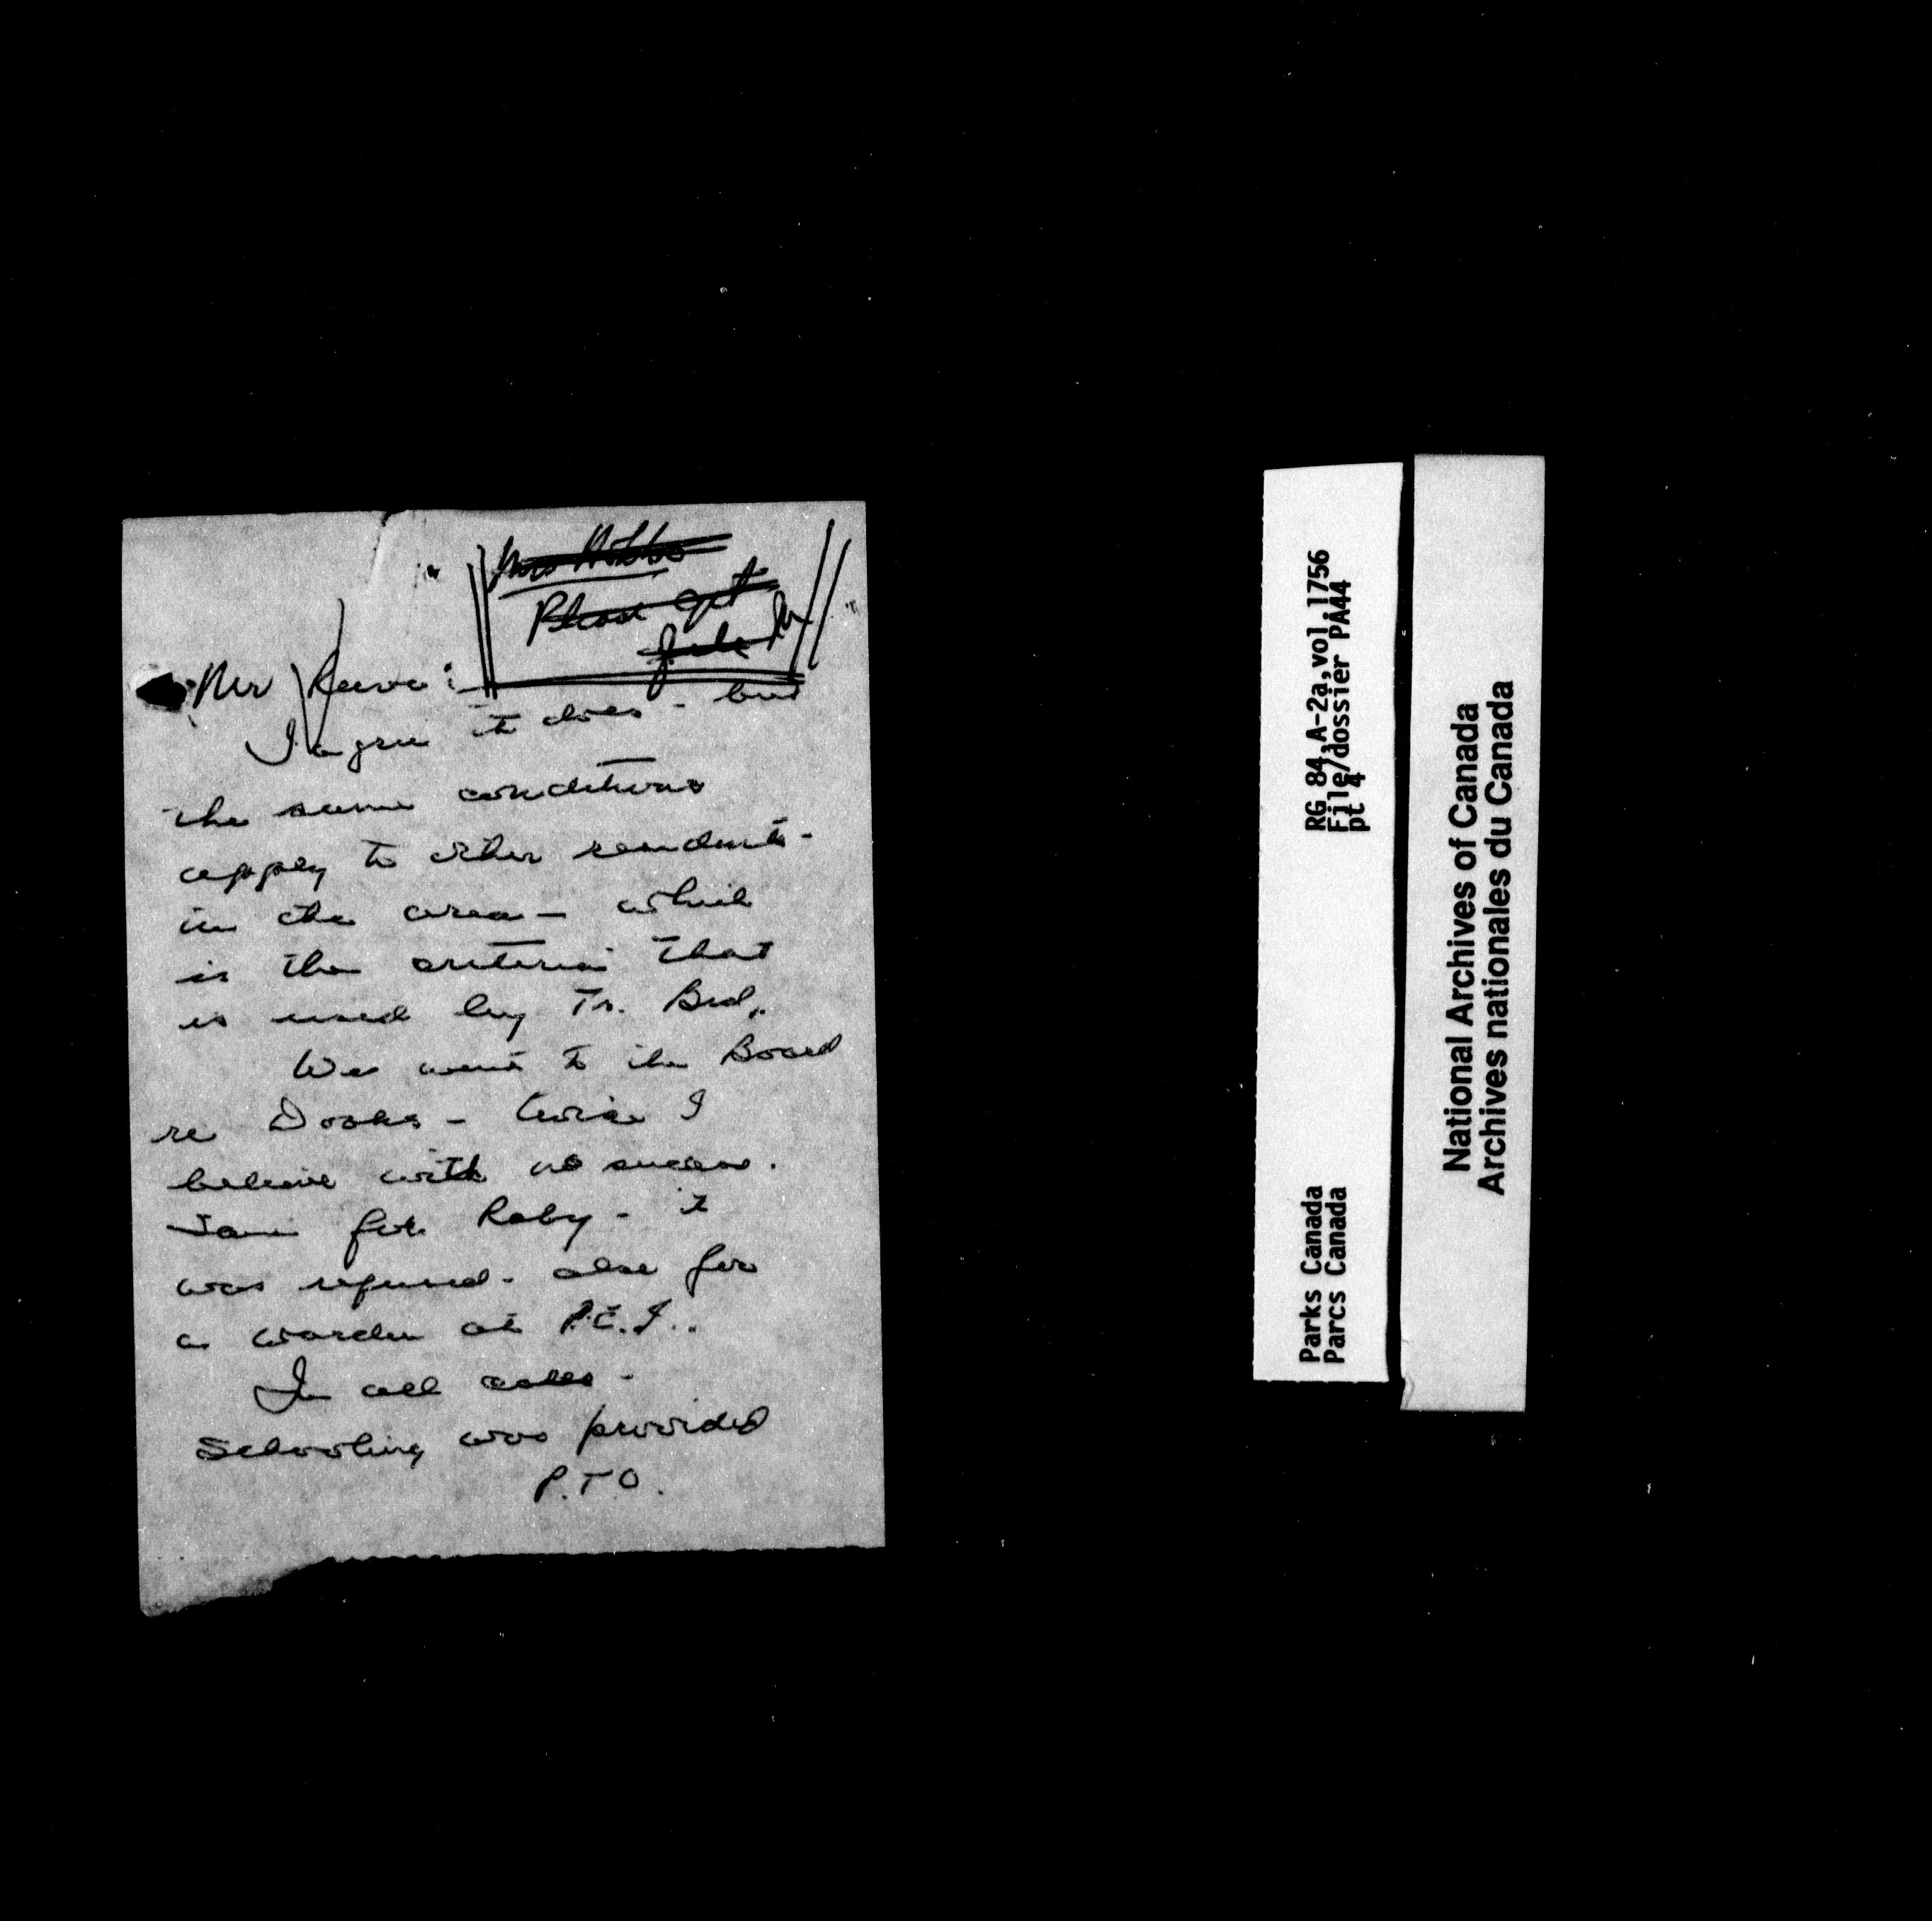 Please get
file
Mr Reeve:
I agree it does - but
the same conditions
apply to other residents -
in the area - which
is the criteria that
is used by Tr. Brd..
We went to the Board
re Dooks - twice I
believe with no success.
Same for Raby - it
was refused - also for
a warden at P.E.I..
In all cases -
Schooling was provided
P.T.O.
RG 84,A-2a,vol.1756
File/dossier PA44
pt 4
Parks Canada
Parcs Canada
National Archives of Canada
Archives nationales du Canada